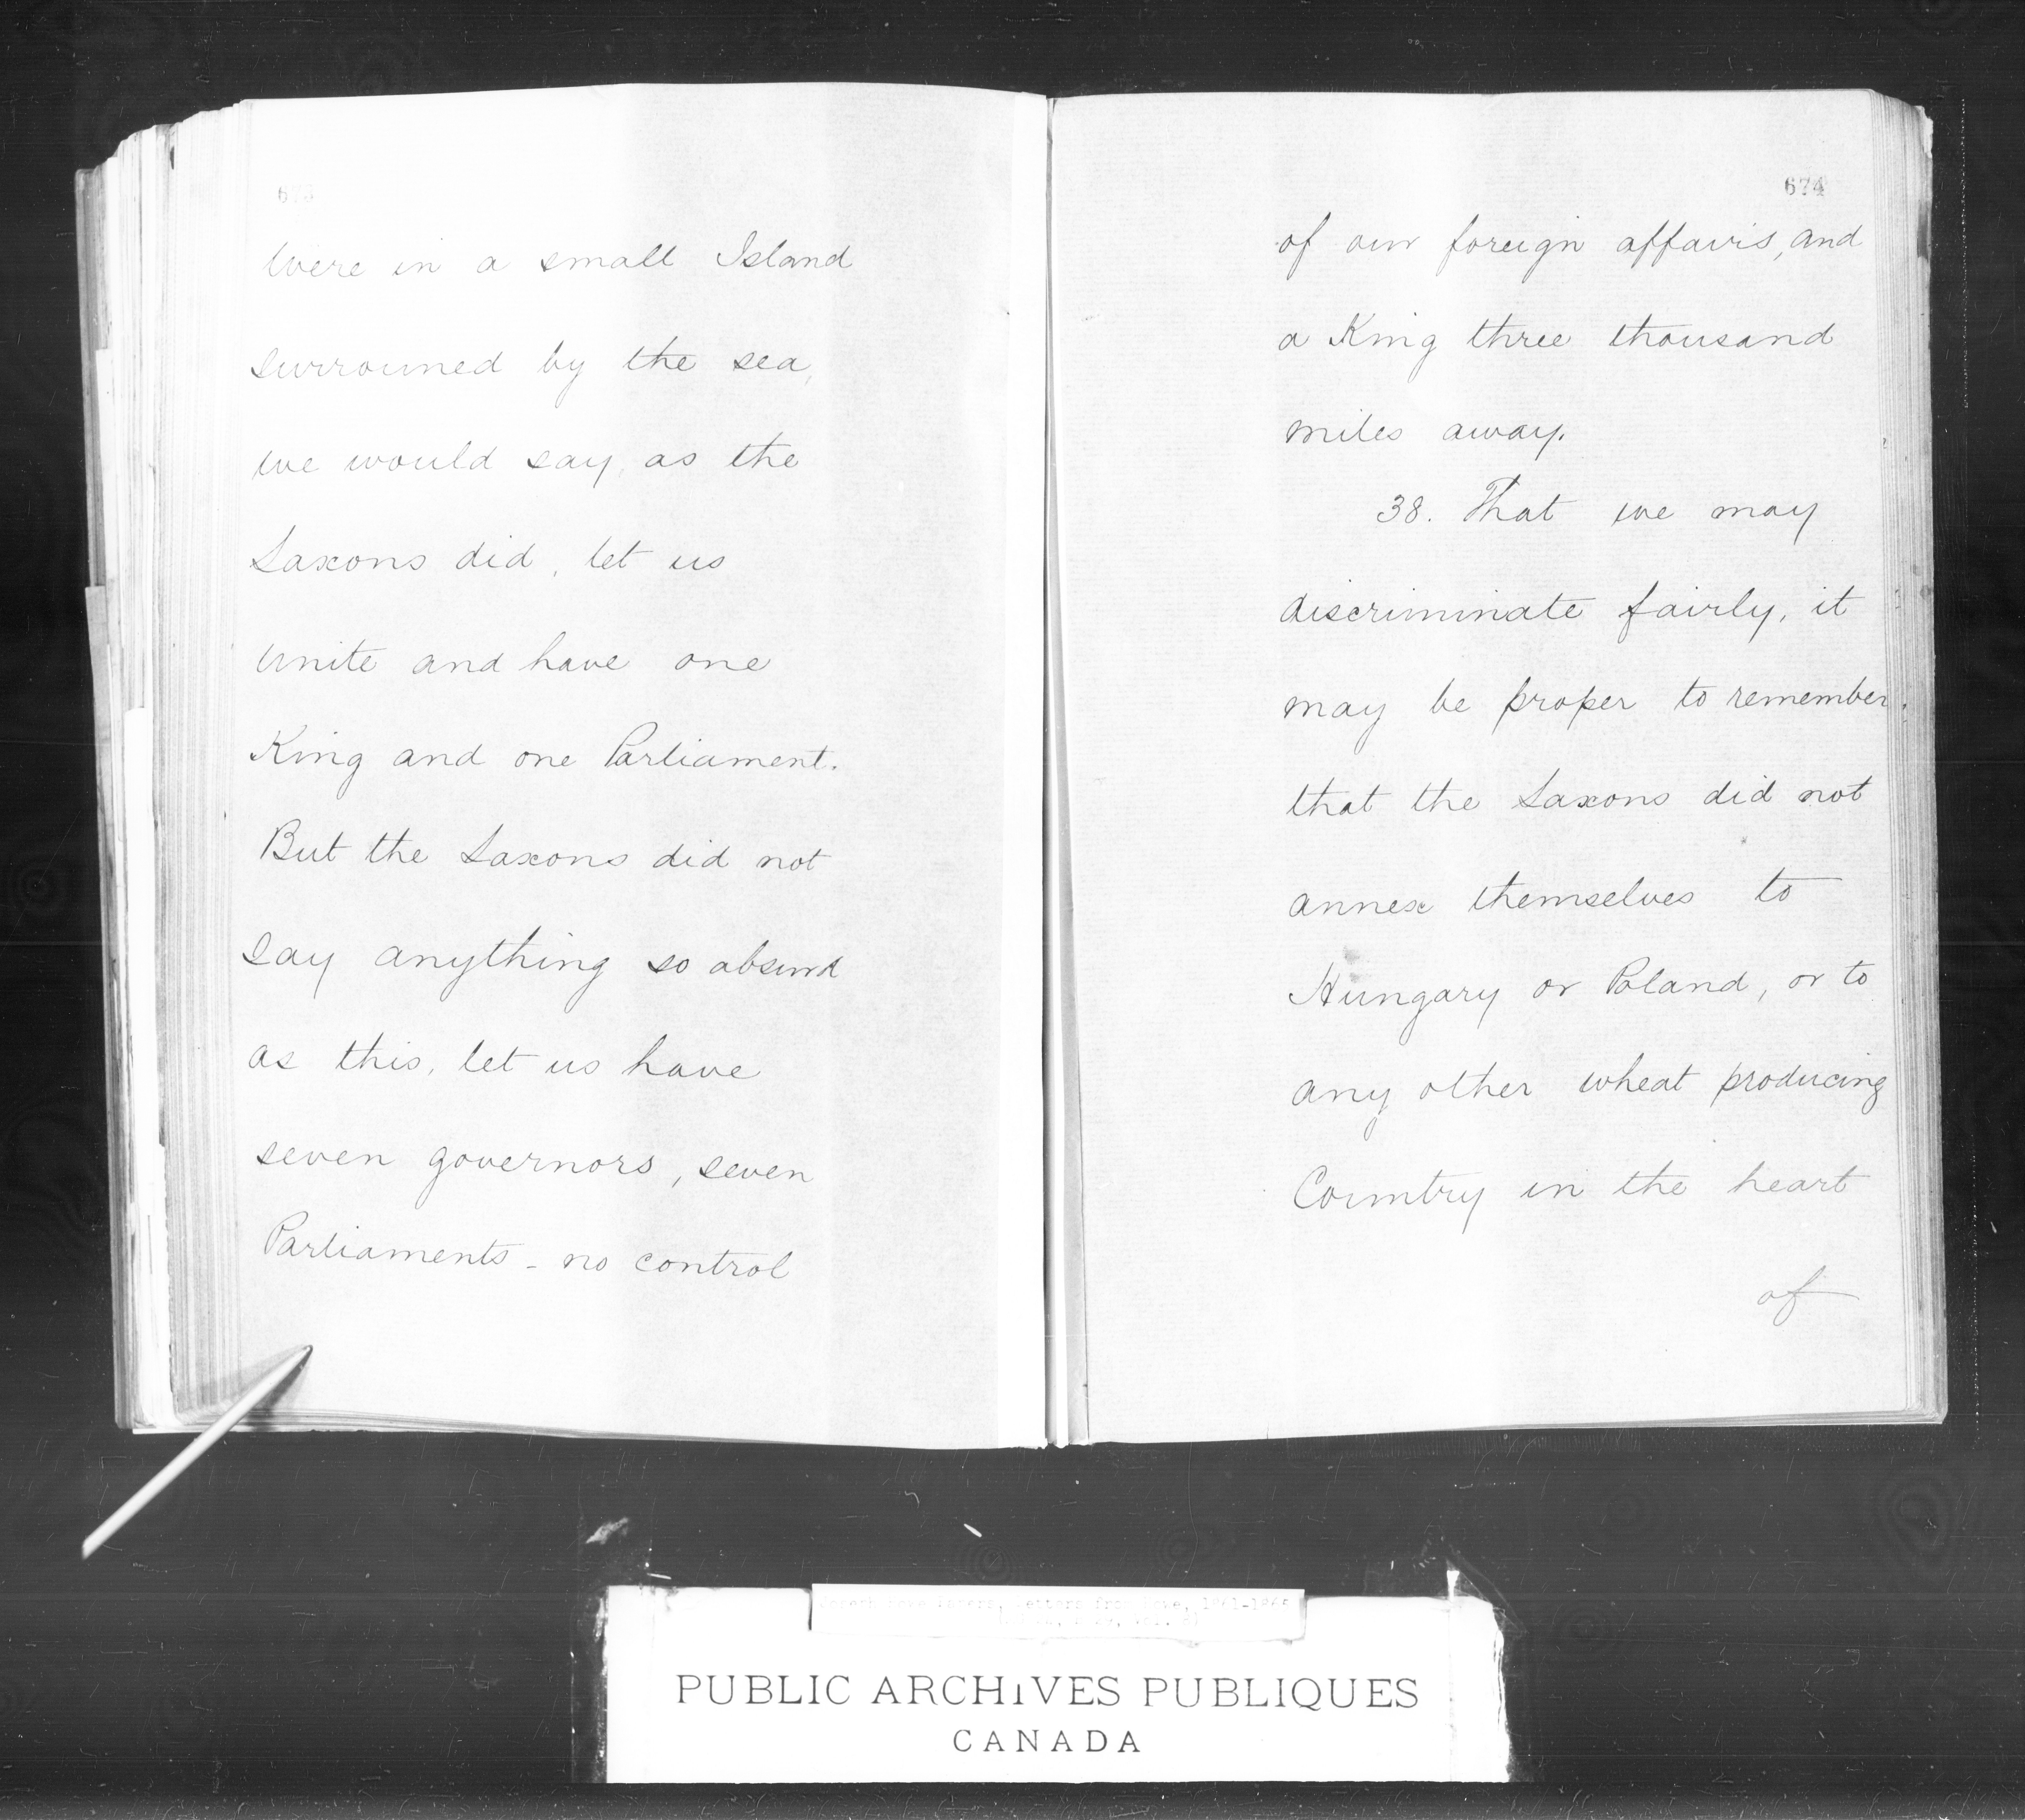 673
were in a small Island
surrouned by the sea,
we would say, as the
Saxons did, let us
unite and have one
King and one Parliament.
But the Saxons did not
say anything so absurd
as this, let us have
seven governors, seven
Parliaments - no control
674
of our foreign affairs, and
a King three thousand
miles away.
38. That we may
discriminate fairly, it
may be proper to remember
that the Saxons did not
annex themselves to
Hungary or Poland, or to
any other wheat producing
Country in the heart
of
Joseph Howe Papers, Letters from Howe, 1861-1865
PUBLIC ARCHIVES PUBLIQUES
CANADA